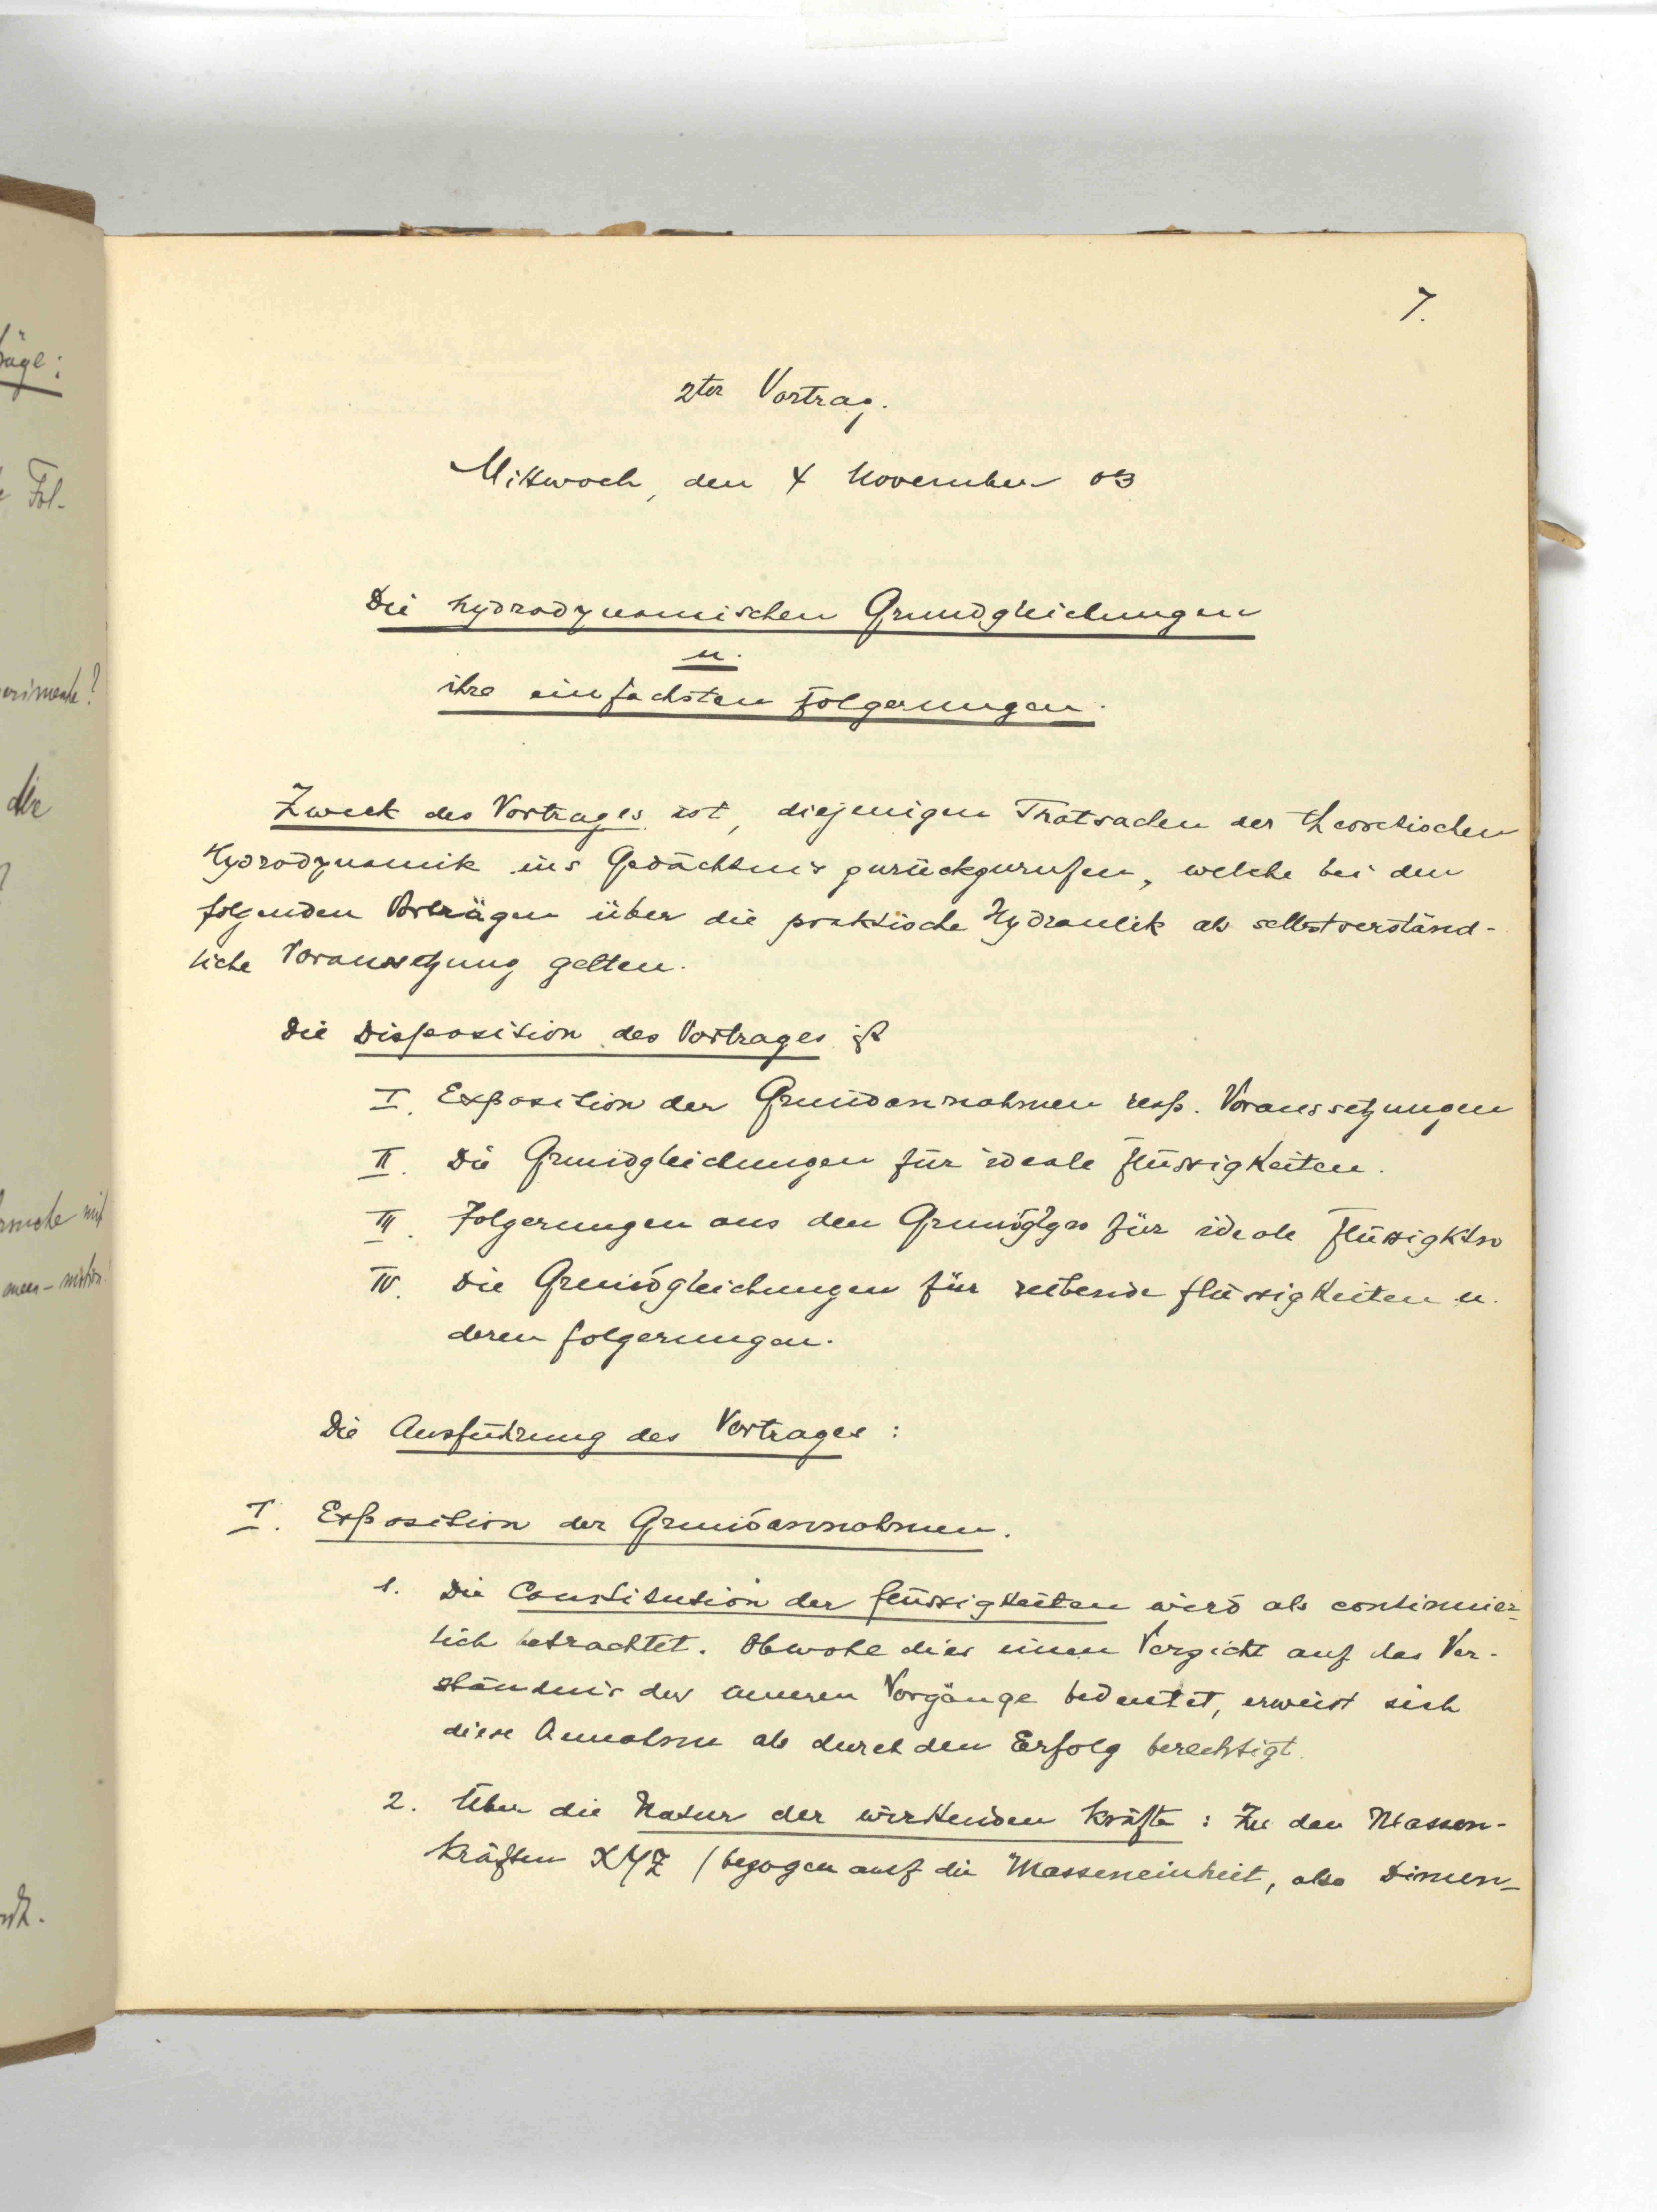 7.
2ter Vortrag.
Mittwoch, den 4 November 03
Die hydrodynamischen Grundgleichungen
u.
ihre einfachsten Folgerungen.
Zweck des Vortrages ist, diejenigen Thatsachen der theoretischen
Hydrodynamik ins Gedächtnis zurückzurufen, welche bei den
folgenden Vorträgen über die praktische Hydraulik als selbstverständ-
liche Voraussetzung gelten.
Die Disposition des Vortrages ist
I. Exposition der Grundannahmen resp. Voraussetzungen
II. Die Grundgleichungen für ideale Flüssigkeiten.
III. Folgerungen aus den Grundglgen für ideale Flüssigktn
IV. Die Grundgleichungen für reibende Flüssigkeiten u.
deren Folgerungen.
Die Ausführung des Vortrages :
I. Exposition der Grundannahmen.
1. Die Constitution der Flüssigkeiten wird als continuier=
lich betrachtet. Obwohl dies einen Verzicht auf das Ver-
ständnis der inneren Vorgänge bedeutet, erweist sich
diese Annahme als durch den Erfolg berechtigt.
2. Über die Natur der wirkenden Kräfte : Zu den Massen-
kräften XYZ (bezogen auf die Masseneinheit, also Dimen-
räge:
Fol.
erimente?
die
mit